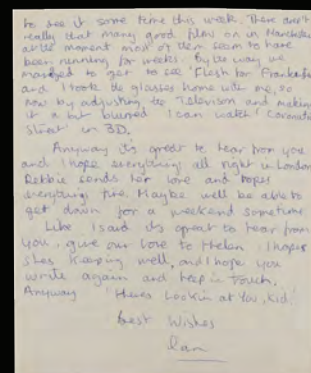 to see it some time this week. There aren't
really that many good films on in Manchester
at the moment most of them seem to have
been running for weeks. By the way we
managed to get to see 'Flesh for Frankenstein'
and I took the glasses home with me, so
now by adjusting the Television and making
it a bit blurred I can watch 'Coronation
Street' in 3D.
Anyway its great to hear from you
and I hope everything's all right in London
Debbie sends her love and hopes
everything fine. Maybe we'll be able to
get down for a weekend sometime
Like I said its great to hear from
you, give our love to Helen I hope
shes keeping well, and I hope you
write again and keep in touch.
Anyway 'Heres Lookin at You, Kid'
best Wishes
Ian